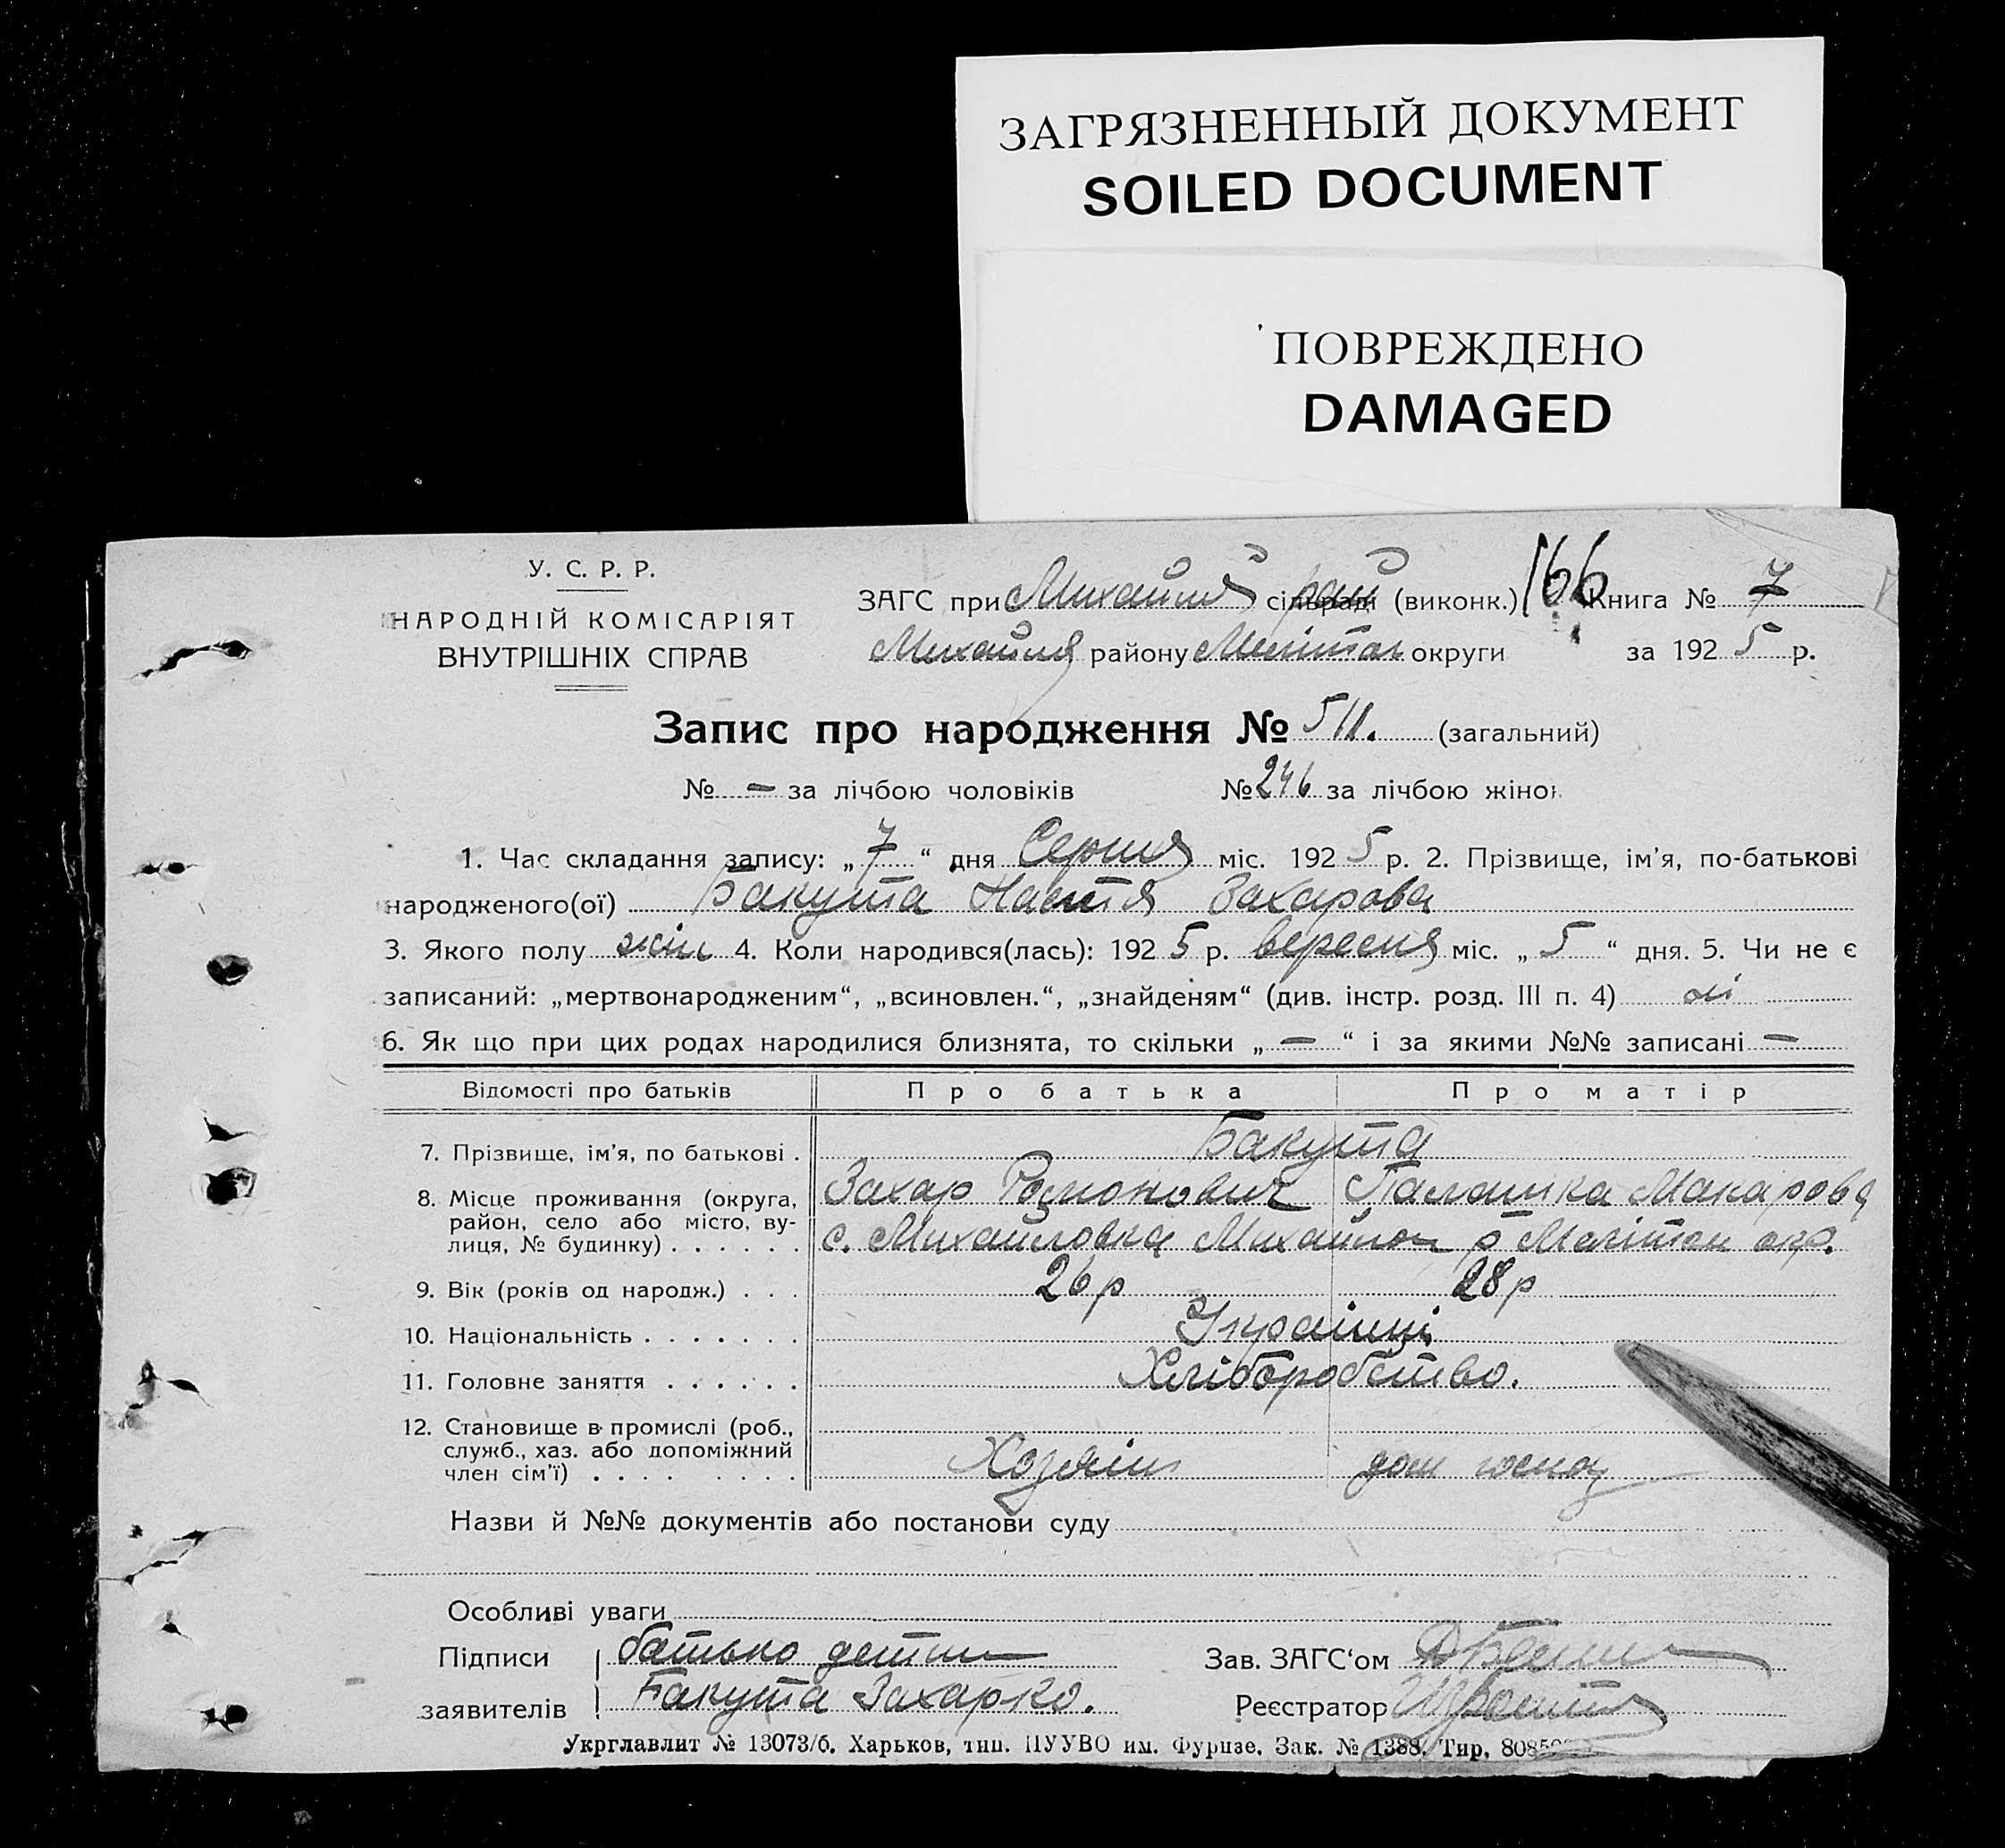 ЗАГРЯЗНЕННЫЙ ДОКУМЕНТ
SOILED DOCUMENT
ПОВРЕЖДЕНО
DAMAGED
У. С. Р. Р.
НАРОДНІЙ КОМІСАРІЯТ
ВНУТРІШНІХ СПРАВ
ЗАГС при Михайлів сільраді рай (виконк.) 166 Книга № 7
Михайлів району Мелітоп округи за 1925 р.
Запис про народження № 511. (загальний)
№ — за лічбою чоловіків № 246 за лічбою жінок
1. Час складання запису: „7“ дня Серпня міс. 1925 р. 2. Прізвище, ім’я, по-батькові
народженого(ої) Бакута Настя Захарова
3. Якого полу жін 4. Коли народився(лась): 1925 р. вересня міс. „5“ дня. 5. Чи не є
записаний: „мертвонародженим“, „всиновлен.“, „знайденям“ (див. інстр. розд. III п. 4) ні
6. Як що при цих родах народилися близнята, то скільки „—“ і за якими №№ записані —
Відомості про батьків Про батька Про матір
7. Прізвище, ім’я, по батькові . Бакута
Захар Палашка Макарова
8. Місце проживання (округа,
район, село або місто, ву-
лиця, № будинку) . . . . . . с. Михайловка Михайлов р Мелітоп окр.
9. Вік (років од народж.) . . . 26 р 28 р
10. Національність . . . . . . . Українці
11. Головне заняття . . . . . . Хліборобство.
12. Становище в промислі (роб.,
служб., хаз. або допоміжний
член сім’ї) . . . . . . . . . Хозяїн дом госпо
Назви й №№ документів або постанови суду
Особливі уваги
Підписи батько Зав. ЗАГС‘ом
заявителів Бакута Захарко. Реєстратор
Укрглавлит № 13073/б. Харьков, тип. ПУУВО им. Фрунзе. Зак. № 1388. Тир. 80850